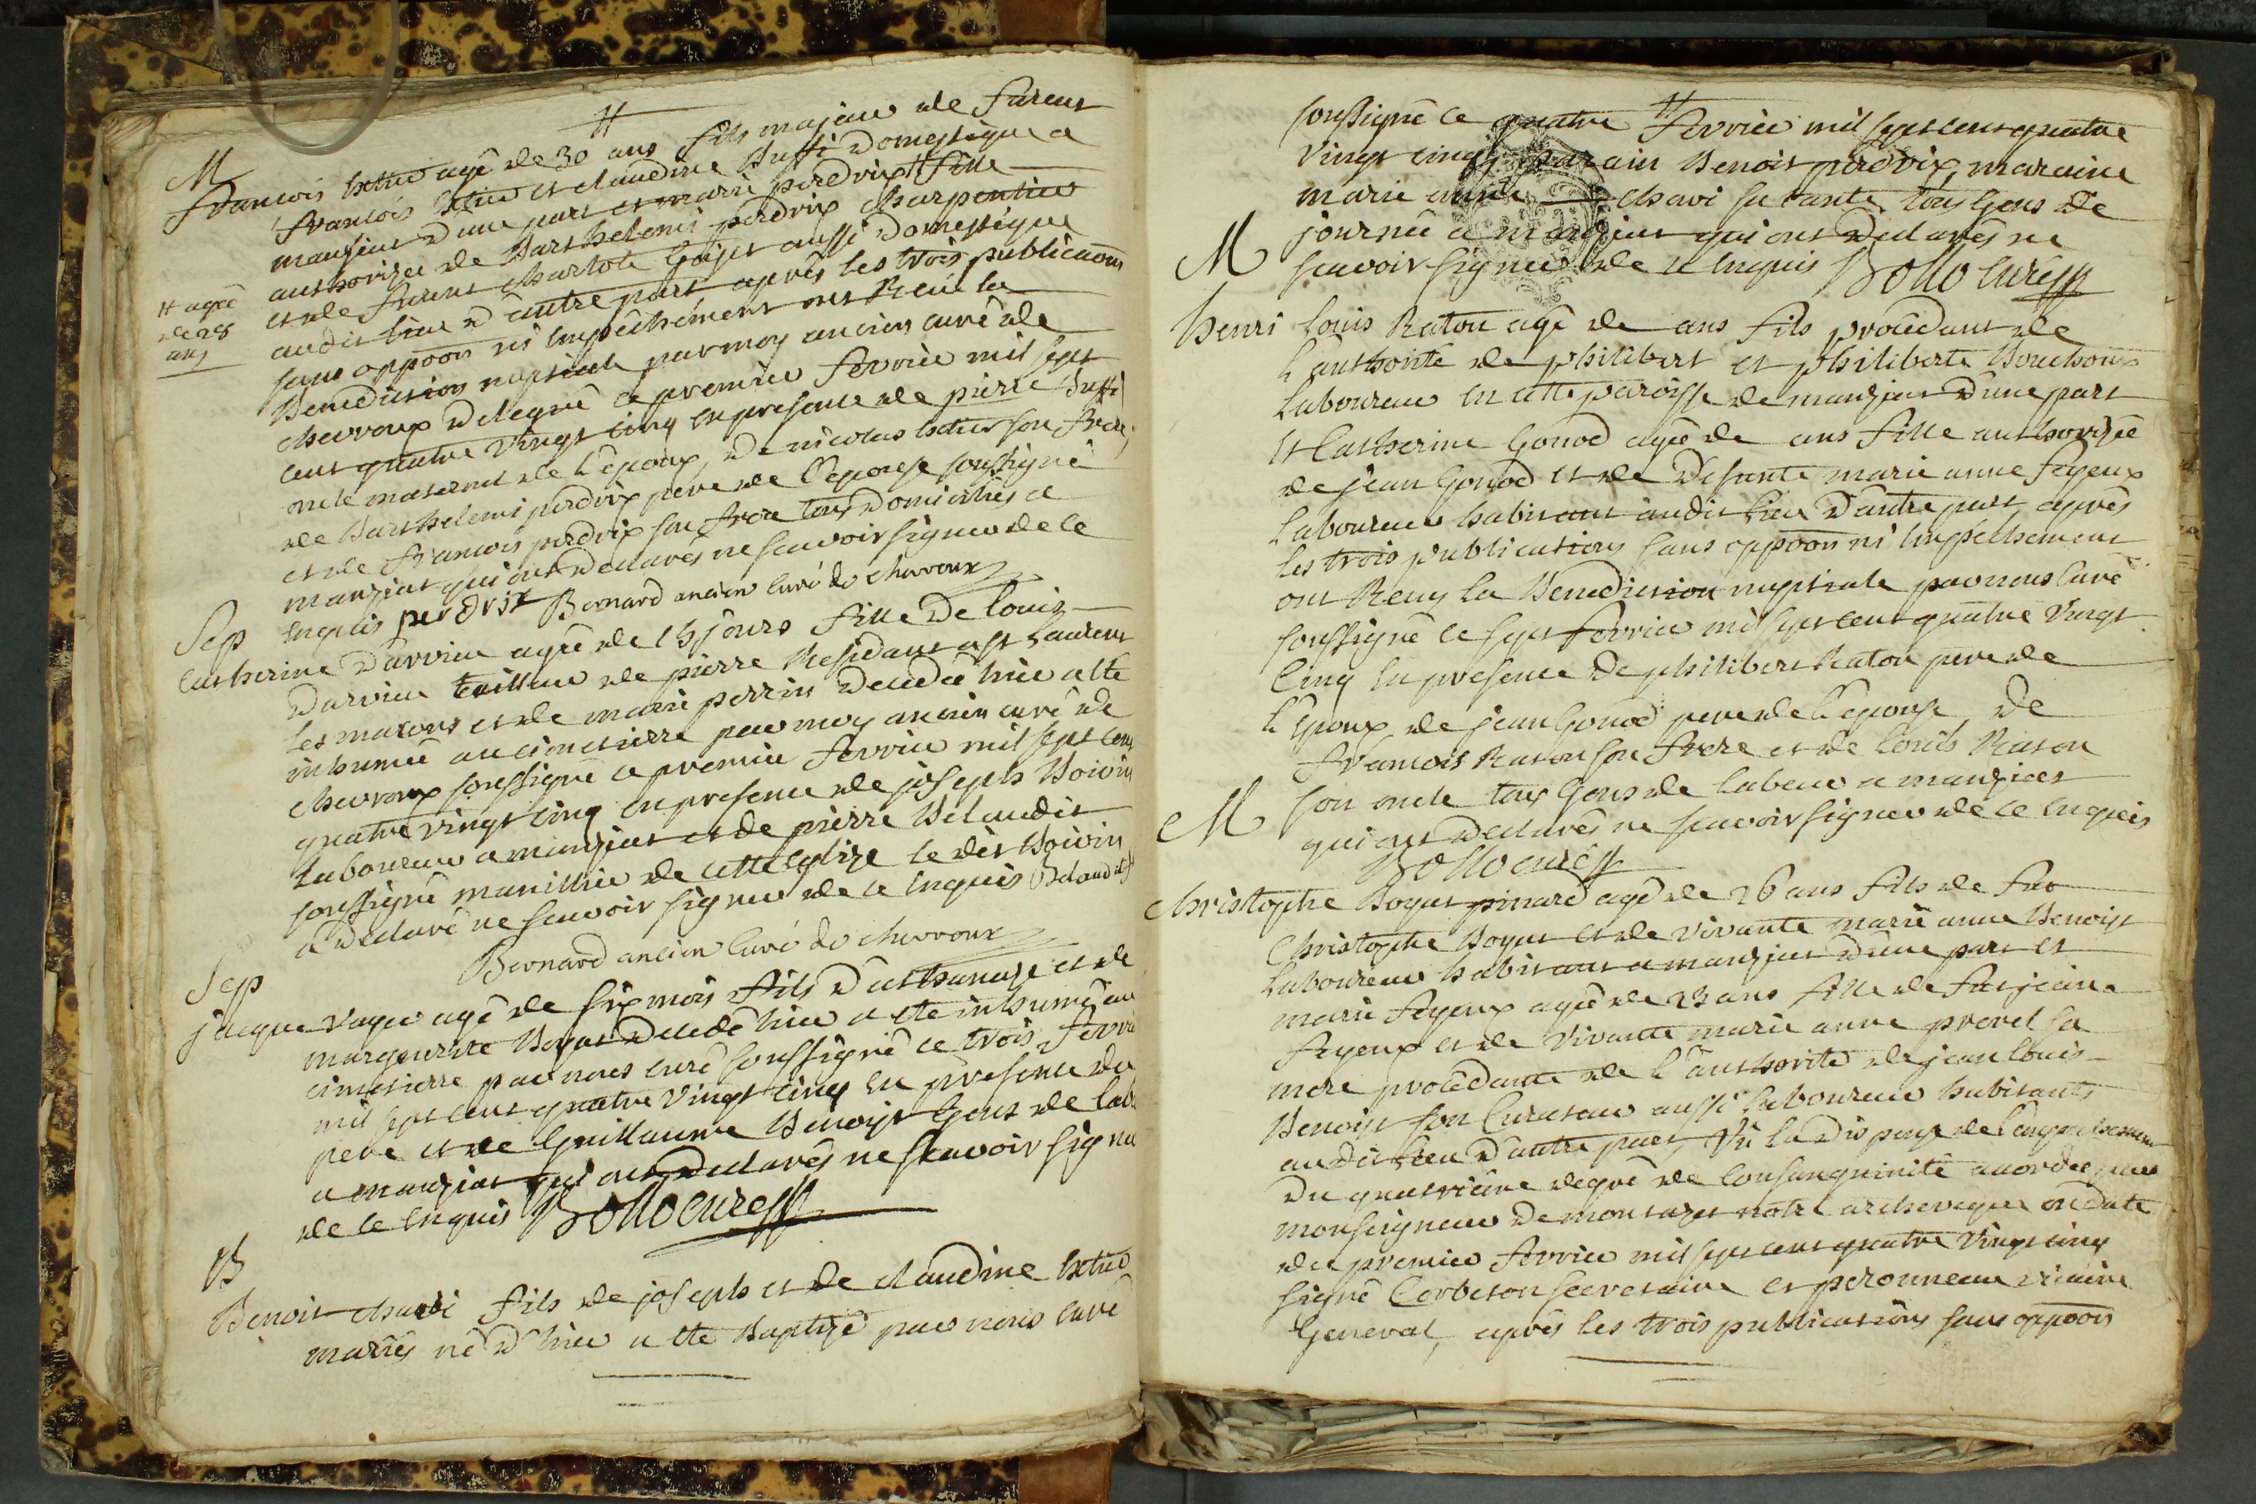 M
françois hetue agé de 30 ans fils majeur de fureut
françois hetue et claudine Buffi domestique a
manziat d'une part et marie perdrix # fille
authorizée de Barthelemi perdrix charpentier
et de furent charlote Gojet aussi domestique
# agée
de 28
ans
audit lieu d'autre part après les trois publicaôns
sans oppoôn ni Empêchement ont Reçu la
Benediction nuptiale par moy ancien curé de
chevroux delegué ce premier fevrier mil sept
cent quatre vingt cinq en presence de pierre Buffi
oncle maternel de l'époux, de nicolas hetue son frere,
de Barthelemi perdrix pere de l'epouse soussigné
et de françois perdrix son frere tous domiciliés a
manziat qui ont declarés ne scavoir signer de ce
Enquis perdrix Bernard ancien Curé de chevroux
Sep
Catherine Darvieu agée de 15 jours fille de louis
Darvieu tailleur de pierre Residant a st Laurent
les macons et de marie perrin decedée hier a été
inhumée au cimetierre par moy ancien curé de
chevroux soussigné ce premier fevrier mil sept cent
quatre vingt cinq en presence de joseph Boivin
Laboureur a manziat et de pierre Belaudit
soussigné manillier de cette eglize le dit Boivin
a declaré ne scavoir signer de ce Enquis Belaudit
Bernard ancien Curé de chevroux
Sep
jacque vayer agé de six mois fils d'athanaze et de
marguerite Boyat decedé hier a été inhumé au
cimetierre par nous curé soussigné ce trois fevrier
mil sept cent quatre vingt cinq en presence du
pere et de Guillaume Benoist Gens de lab
a manziat qui ont declarés ne scavoir signer
de ce Enquis Bollo curé
B
Benoit chavi fils de joseph et de claudine hetue
mariés né d'hier a été Baptizé par nous curé
soussigné ce quatre fevrier mil sept cent quatre
vingt cinq, parain Benoit perdrix, maraine
marie chavi sa tante tous Gens de
journée a manziat qui ont declarés ne
scavoir signer de ce Enquis Bollo curé
M
henri louis Raton agé de ans fils procédant de
l'authorité de philibert et philiberte Bouchoux
Laboureur en cette paroisse de manziat d'une part
Et Catherine Gonod agée de ans fille authorizée
de jean Gonod et de defunte marie anne feyeux
Laboureur habitant audit lieu d'autre part, après
les trois publications sans oppoôn ni Empêchement
ont Reçu la Benediction nuptiale par nous curé
soussigné ce sept fevrier mil sept cent quatre vingt
Cinq en presence de philibert Raton pere de
l'Epoux de jean Gonod pere de l'epouse, de
françois Raton son frere et de louis Raton
son oncle tous Gens de labeur a manziat
qui ont declarés ne scavoir signer de ce Enquis
Bollo curé
M
christophe Boyat pinard agé de 26 ans fils de feu
Christophe Boyat et de vivante marie anne Benoist
Laboureur habitant a manziat d'une part et
marie feyeux agée de 23 ans fille de feu jean
feyeux et de vivante marie anne prevel sa
mere procédante de l'authorité de jean louis
Benoist son Curateur aussi laboureur habitants
audit lieu d'autre part, Vû la dispense de l'empechement
du quatrième degré de Consanguinité accordée par
monseigneur de montazet notre archeveque en date
du premier fevrier mil sept cent quatre vingt cinq
signé Corbeton secretaire et peronneau vicaire
General, après les trois publications sans oppoôn